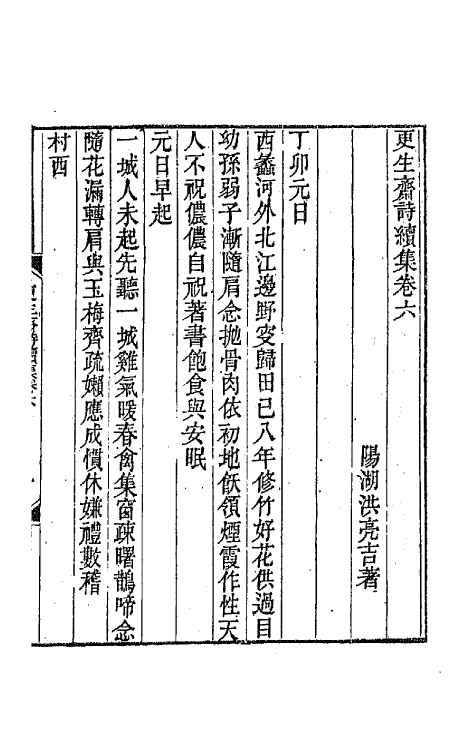 更生齋詩續集卷六
陽湖洪亮吉著
丁卯元日
西蠡河外北江邊野叟歸田已八年修竹好花供過目
幼孫弱子漸隨肩念拋骨肉依初地飫領煙霞作性天
人不祝儂儂自祝著書飽食與安眠
元日早起
一城人未起先聽一城雞氣暖春禽集窗疎曙鵲啼念
隨花漏轉肩與玉梅齊疏嬾應成慣休嫌禮數稽
村西